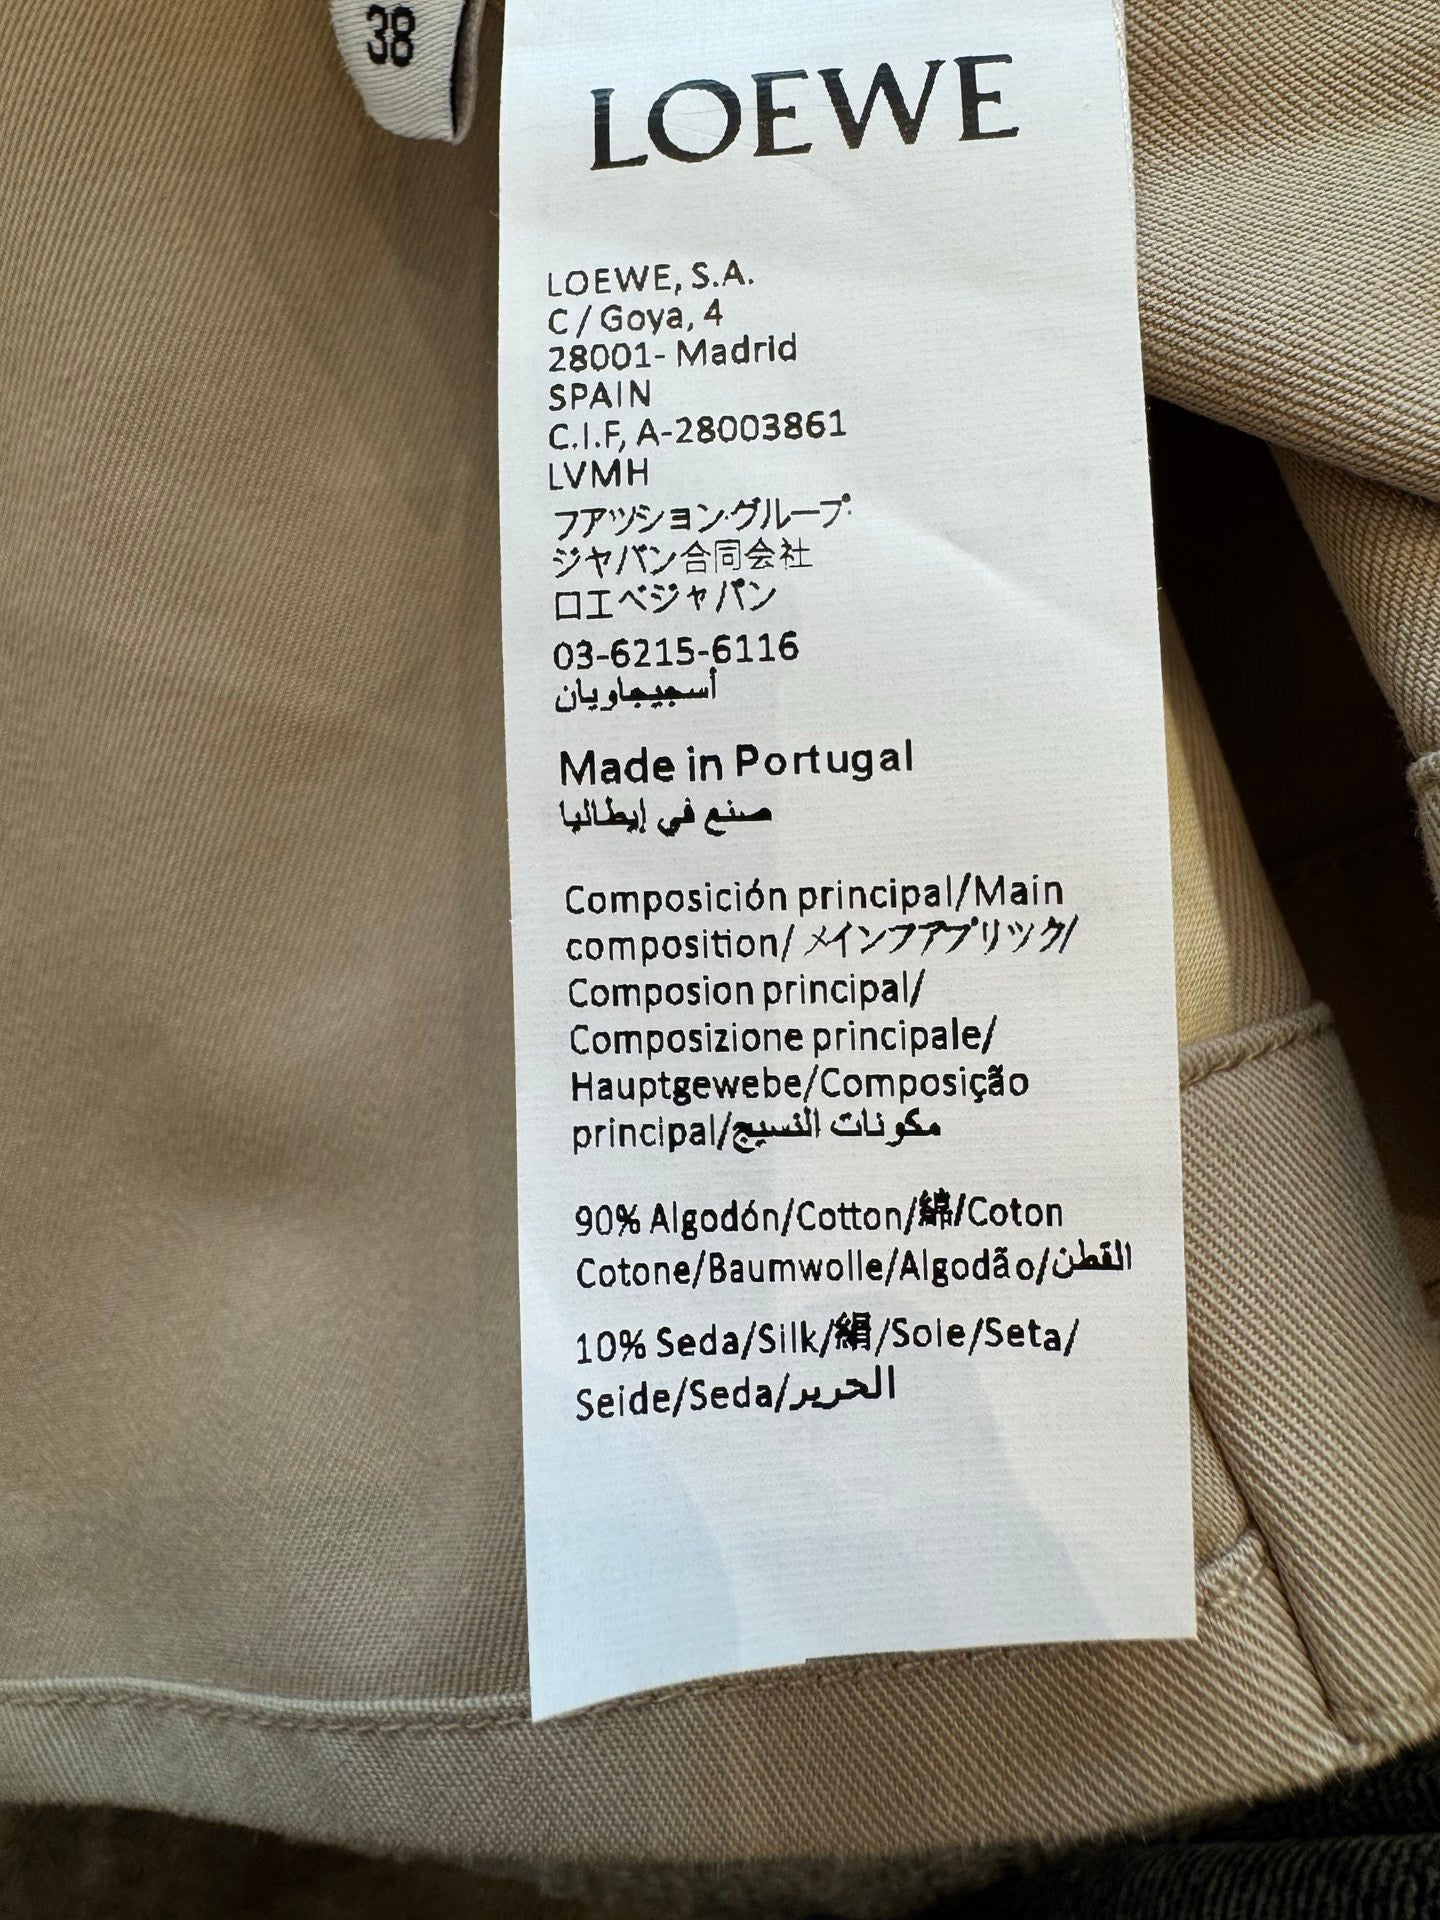 38
LOEWE
LOEWE, S.A.
C / Goya, 4
28001- Madrid
SPAIN
C.I.F, A-28003861
LVMH
フアツション·グループ
ジヤバン合同会社
ロエベジャパン
03-6215-6116
أسجيجاويان
Made in Portugal
صنع في إيطاليا
Composición principal/Main
composition/メインフアブリツク/
Composion principal/
Composizione principale/
Hauptgewebe/Composição
principal/مكونات النسيج
90% Algodón/Cotton/綿/Coton
Cotone/Baumwolle/Algodão/القطن
10% Seda/Silk/絹/Soie/Seta/
Seide/Seda/الحرير